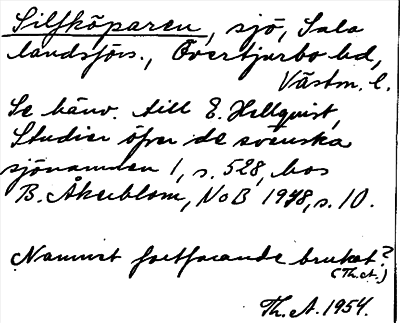 Silfköparen, sjö, Sala
landsförs., Övertjurbo hd,
Västm. l.
Se hänv. till E. Hellquist,
Studier öfver de svenska
sjönamnen 1, s. 528, hos
B. Åkerblom, NoB 1918, s. 10.
Namnet fortfarande brukat?
(Th. A.)
Th. A. 1954.